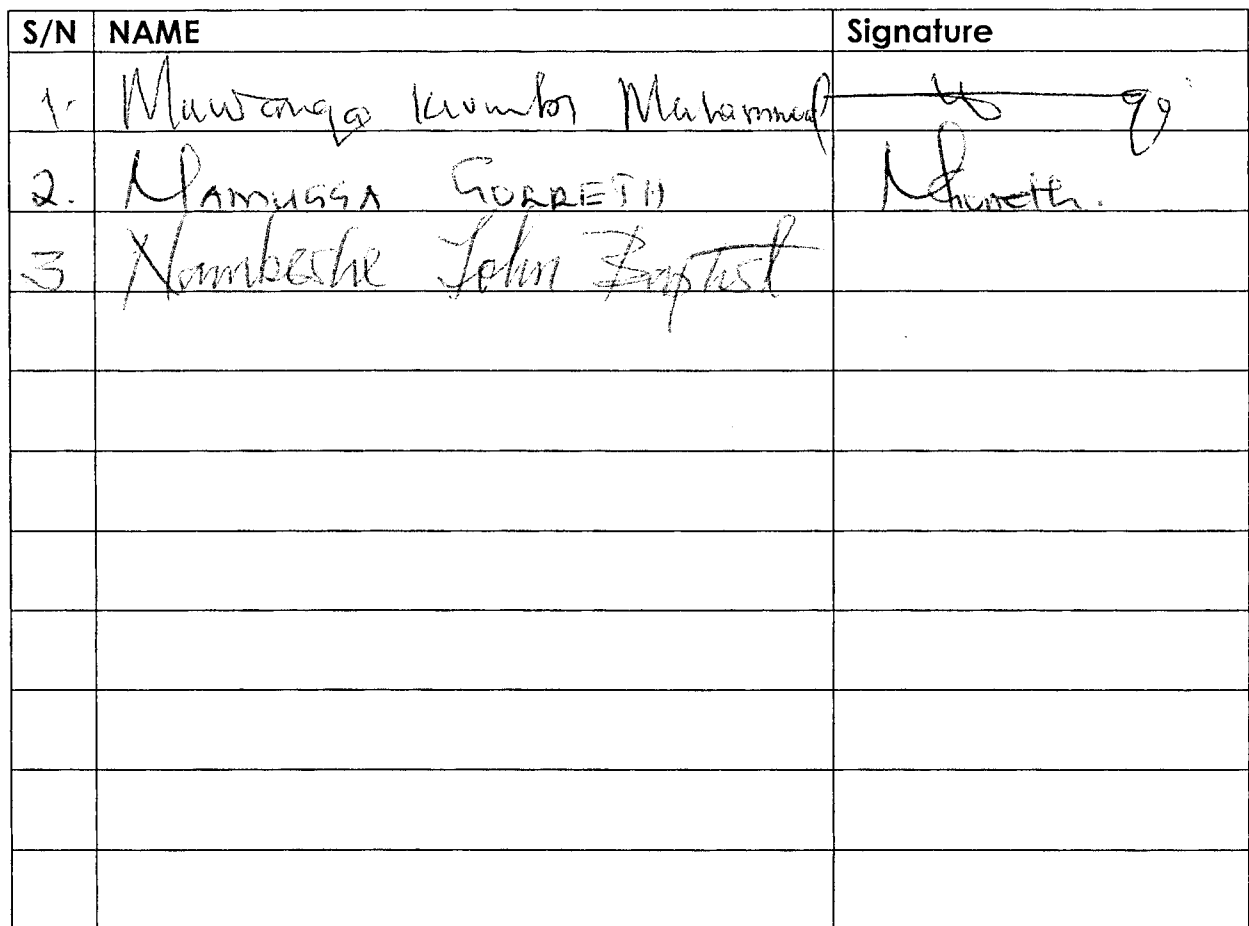 S/N NAME Signature
1. Muwanga Kivumbi Muhammad
2. NAMUGGA GORRETH
3 Nambeshe John Baptist